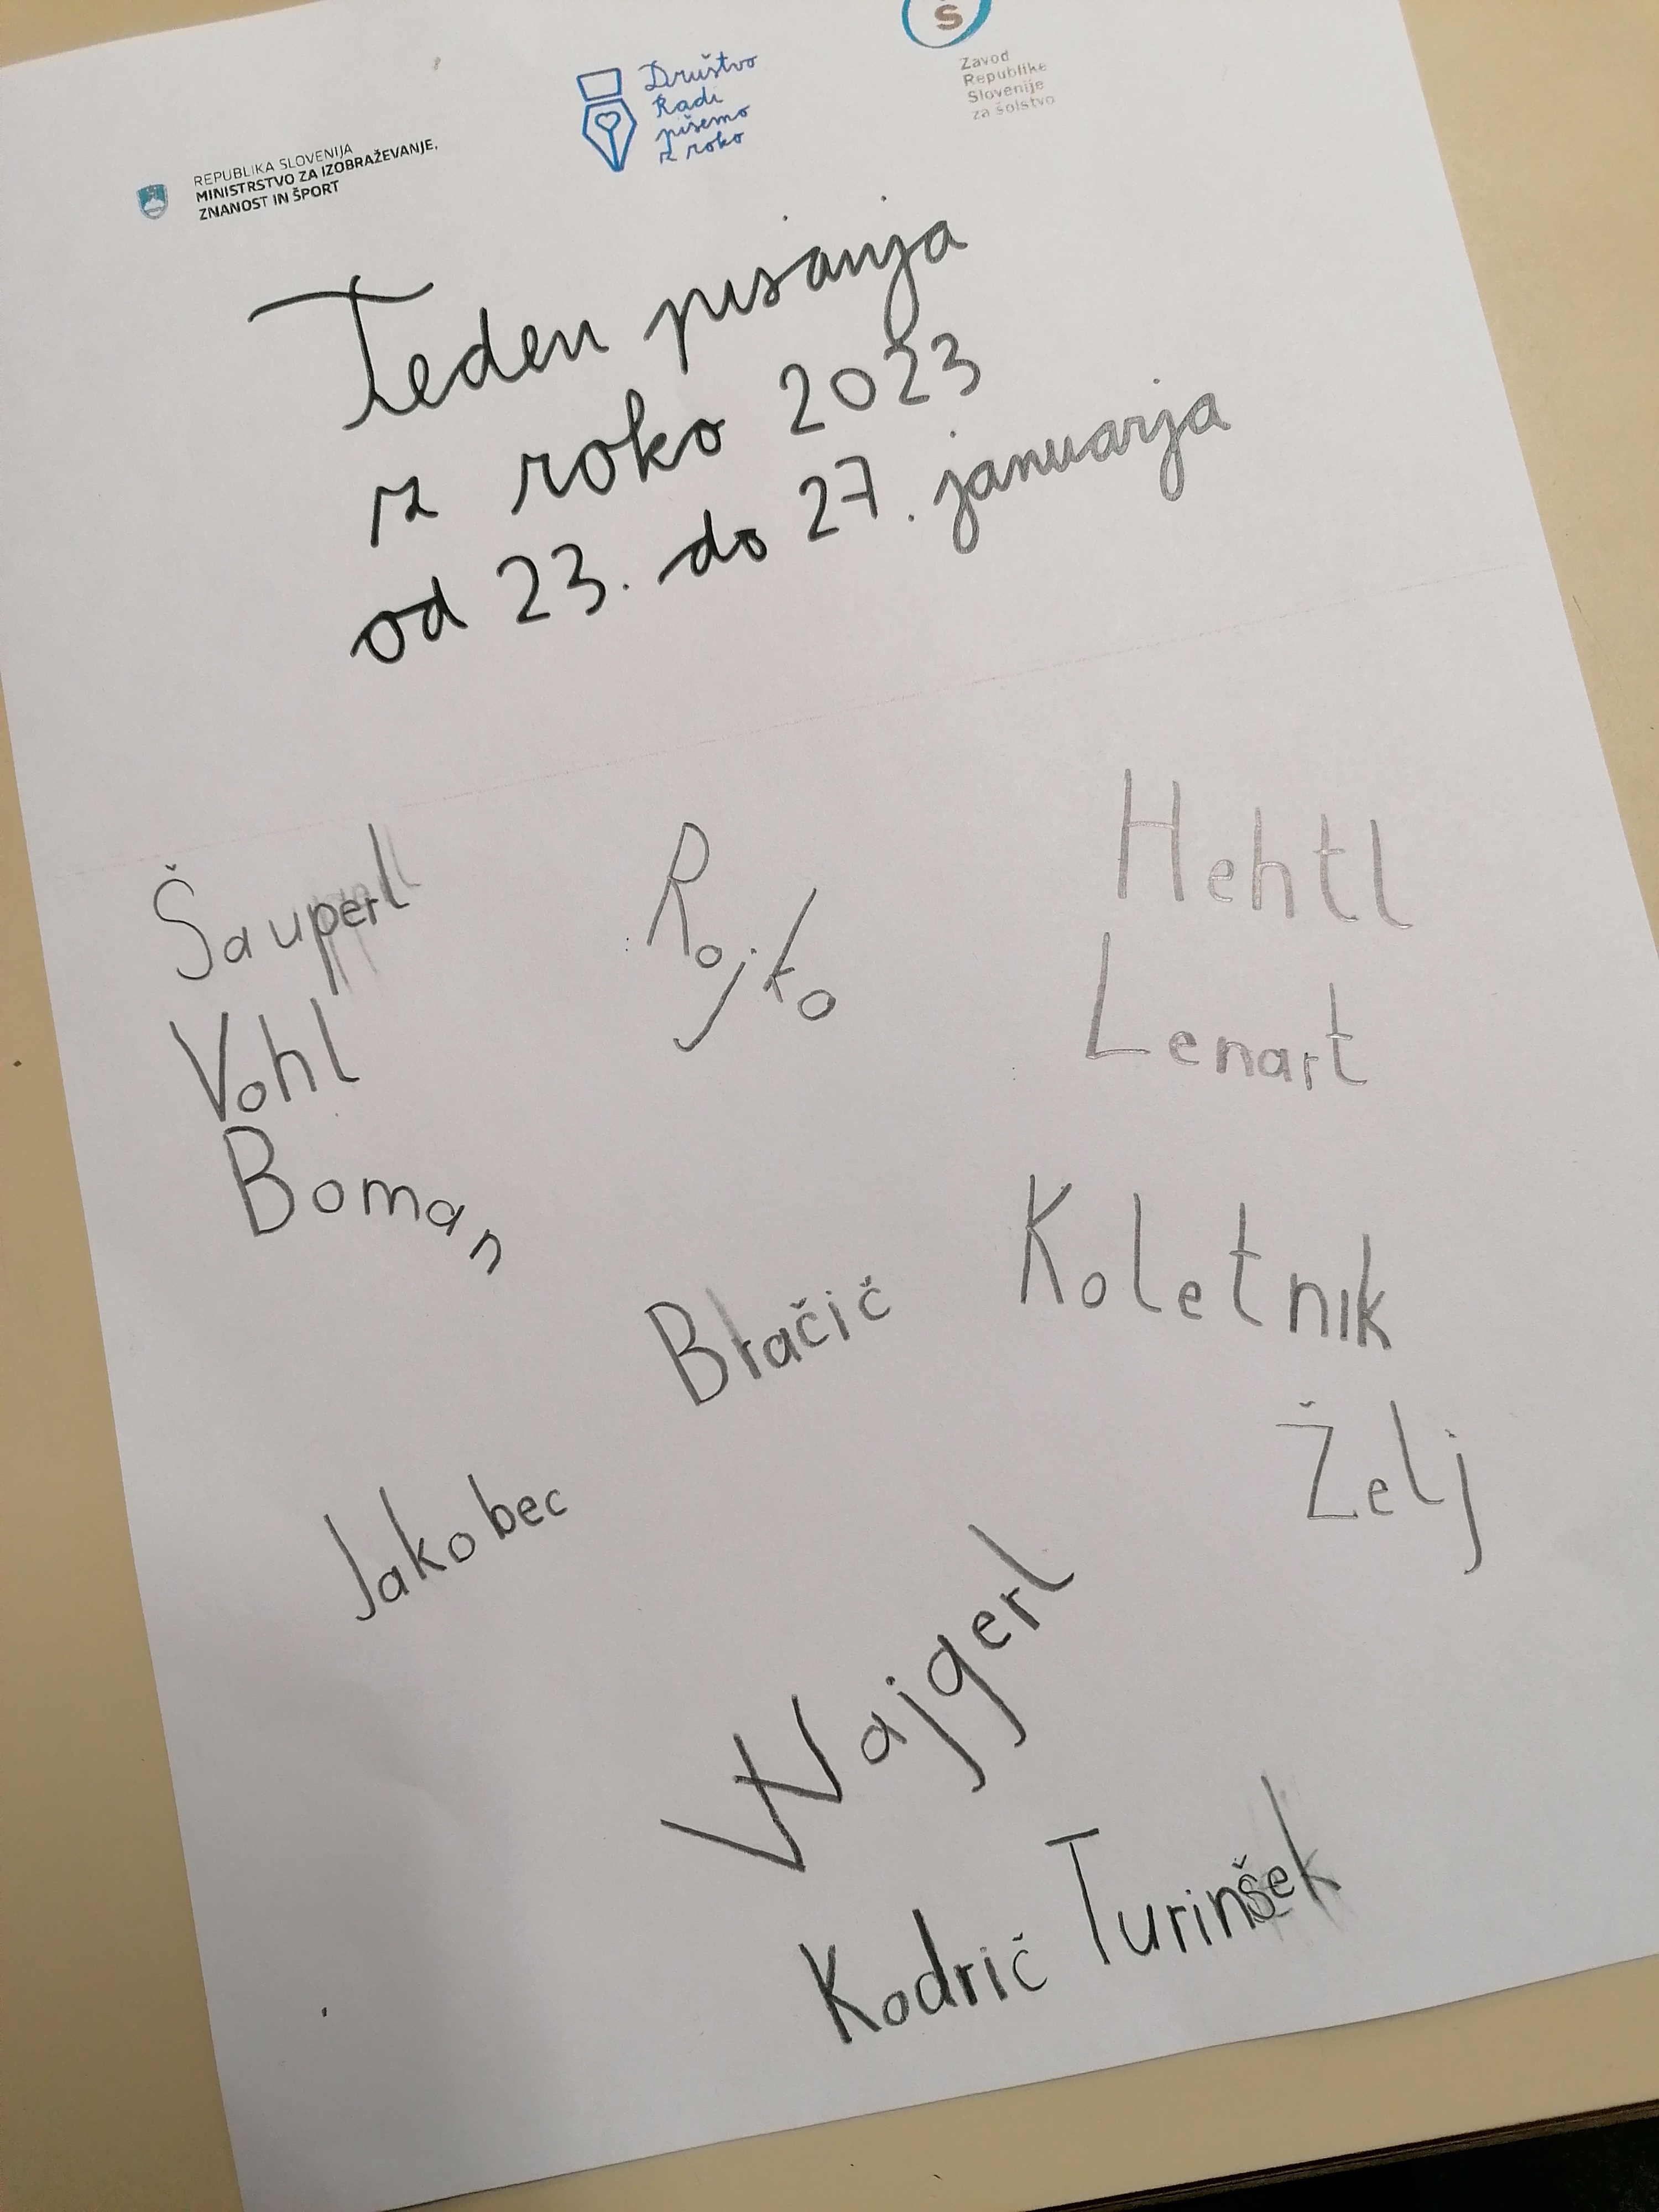 Š
Zavod
Republike
Slovenije
za šolstvo
Društvo
Radi
pišemo
z roko
REPUBLIKA SLOVENIJA
MINISTRSTVO ZA IZOBRAŽEVANJE,
ZNANOST IN ŠPORT
Teden pisanja
z roko 2023
od 23. do 27. januarja
Šauperl
Vohl
Boman
Rojko
Hehtl
Lenart
Bračič
Koletnik
Želj
Jakobec
Wajgerl
Kodrič Turinšek